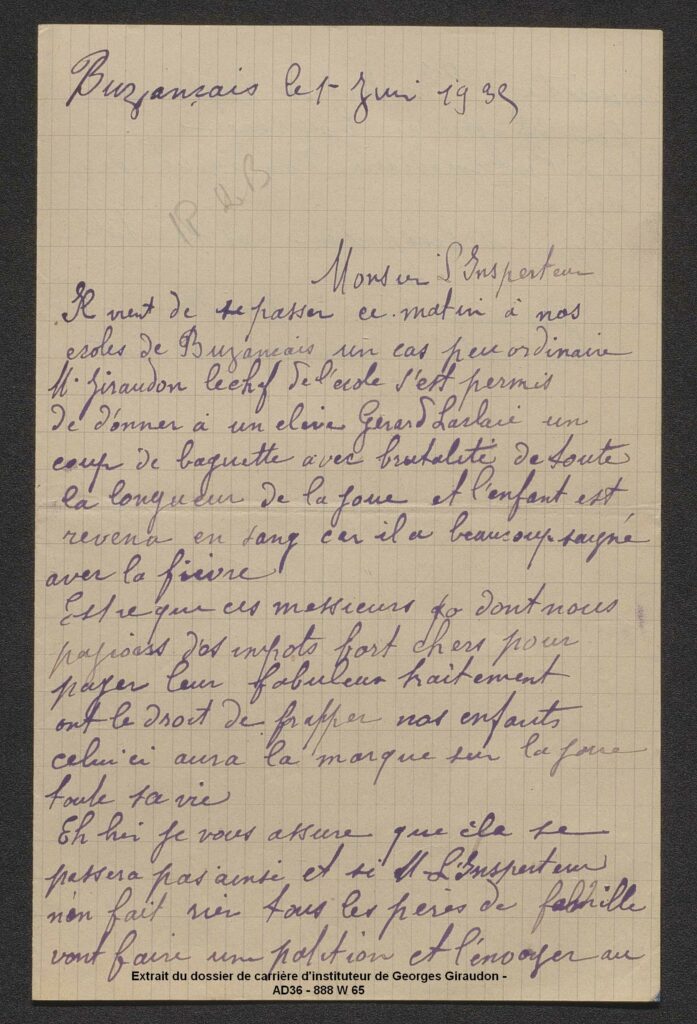 Buzançais le 1 Juin 1935
Monsieur L'Insperteur
Il vient de se passer ce matin à nos
ecoles de Buzancais un cas peu ordinaire
M. Giraudon le chef de l'ecole s'est permis
de donner à un eleve Gerard un
coup de baguette avec brutalité de toute
la longueur de la joue et l'enfant est
revenu en sang car il a beaucoup saigné
avec la fievre
Est ce que ces messieurs dont nous
payions des impots fort chers pour
payer leur fabuleux traitement
ont le droit de frapper nos enfants
celui ci aura la marque sur la joue
toute sa vie
Eh bien je vous assure que cela se
passera pas ainsi et si M. L'Insperteur
n'en fait rien tous les peres de famille
vont faire une petition et l'envoyer au
Extrait du dossier de carrière d'instituteur de Georges Giraudon -
AD36 - 888 W 65